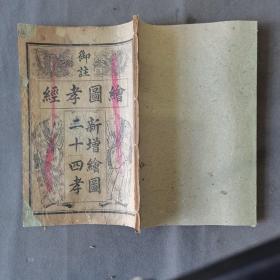 御註
繪圖孝經
新增繪圖
二十四孝